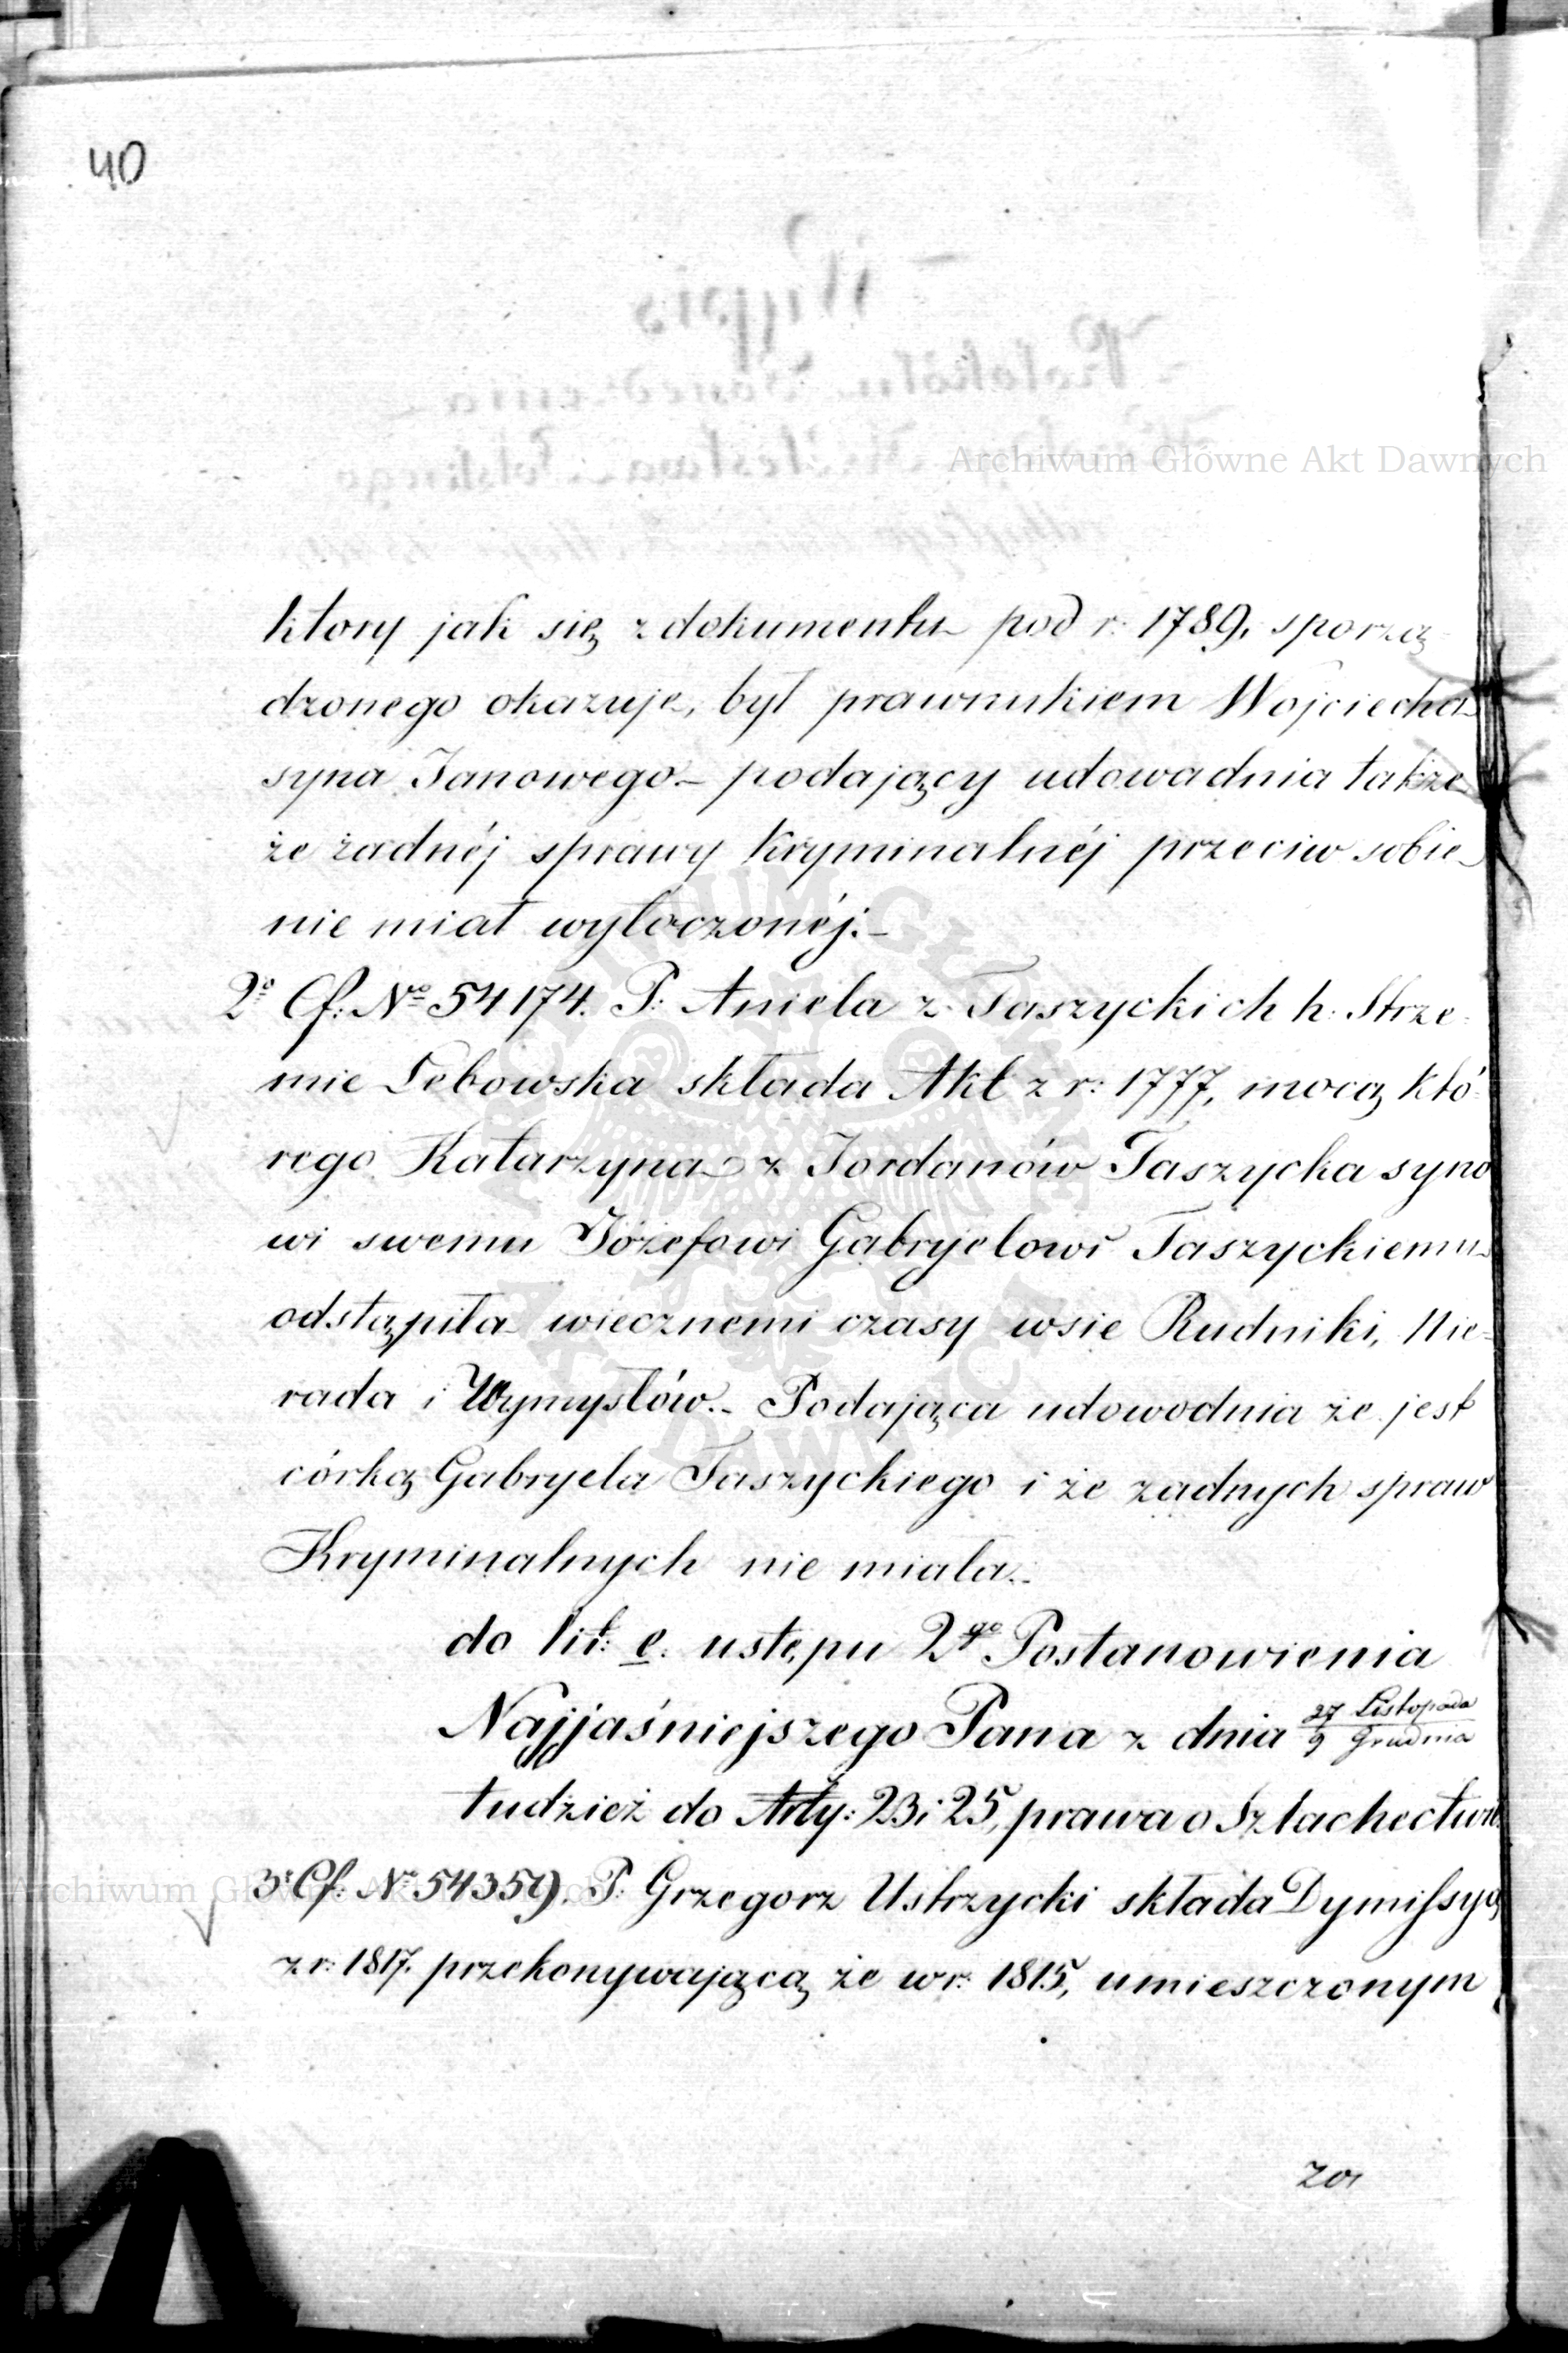 40
Archiwum Główne Akt Dawnych
ktory jak się z dokumentu pod r: 1789, sporzą
dzonego okazuje, był prawnukiem Wojciecha
syna Janowego – podający udowadnia także
że żadnéj sprawy Kryminalnéj przeciw sobie
nie miał wytoczonéj: –
2º Cf: Nº 54174. P: Aniela z Taszyckich h: Strze:
mie Łebowska składa Akt z r: 1777, mocą któ:
rego Katarzyna z Jordanów Taszycka syno
wi swemu Józefowi Gabryelowi Taszyckiemu
odstąpiła wiecznemi czasy wsie Rudniki, Nie-
rada i Wymysłów. – Podająca udowodnia że jest
córką Gabryela Taszyckiego i że żadnych spraw
Kryminalnych nie miała. –
do lit: e. ustępu 2go Postanowienia
Najjaśniejszego Pana z dnia 27 Listopada / 9 Grudnia
tudzież do Arty: 23 i 25, prawa o Szlachectwie
3º Cf: Nº 54359. P: Grzegorz Ustrzycki składa Dymissyą
z r: 1817. przekonywającą że w r: 1815, umieszczonym
zo